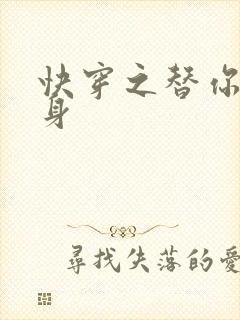 快穿之替你
身
尋找失落的愛